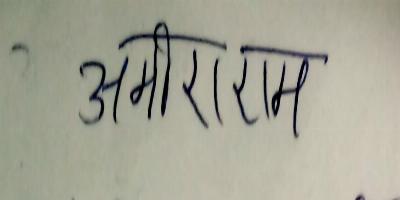 अमीराराम